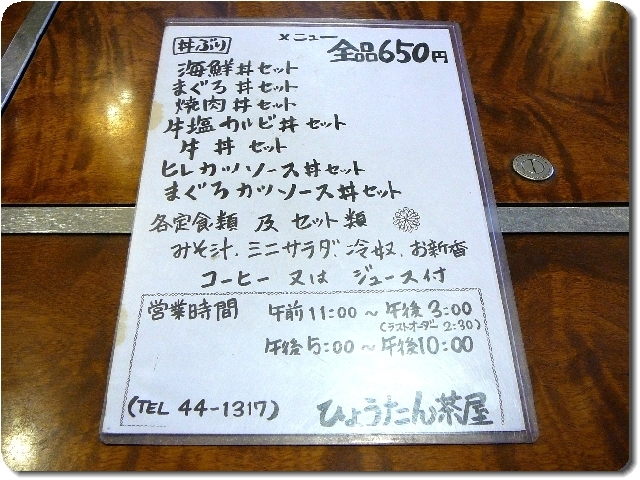 メニュー
丼ぶり 全品650円
海鮮丼セット
まぐろ丼セット
焼肉丼セット
牛塩カルビ丼セット
牛丼セット
ヒレカツソース丼セット
まぐろカツソース丼セット
各定食類 及 セット類
みそ汁、ミニサラダ、冷奴、お新香
コーヒー 又は ジュース付
営業時間 午前11:00～午後3:00
(ラストオーダー 2:30)
午後5:00～午後10:00
(TEL 44-1317) ひょうたん茶屋
1